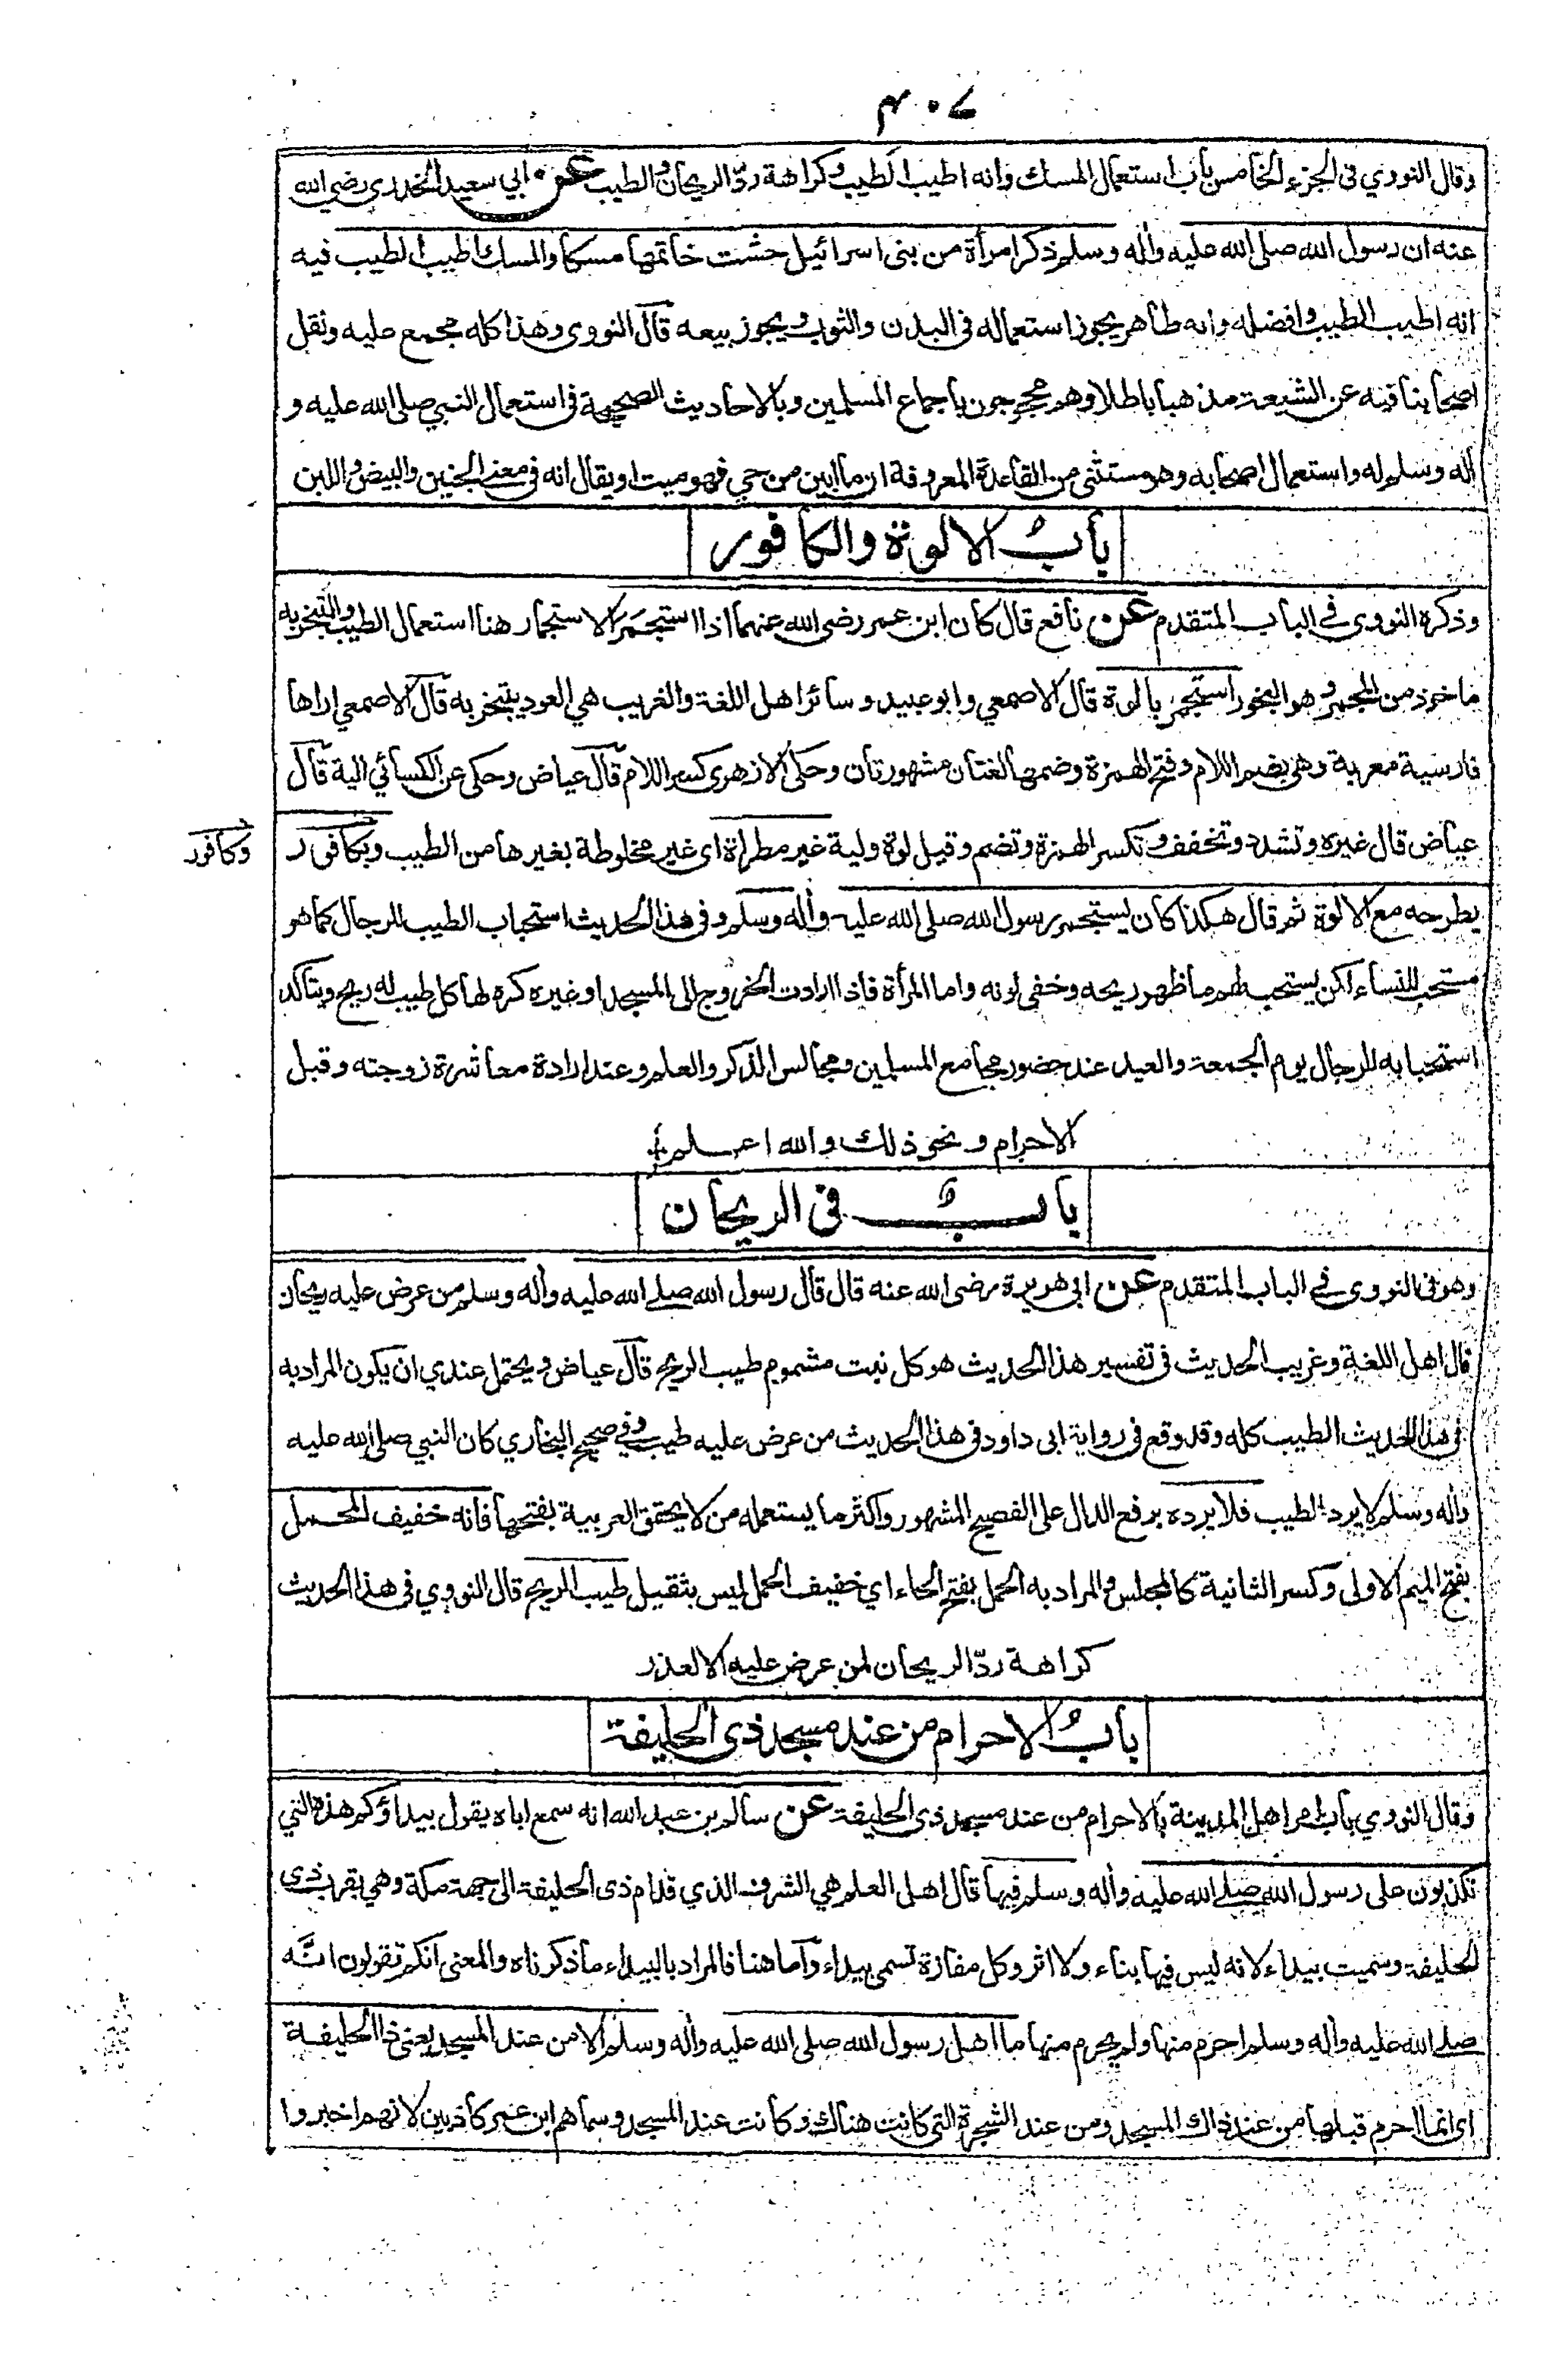 ٤٠٧
وقال النووي في الجزء الخامس باب استعمال المسك وانه اطيب الطيب وكراهة ردّ الريحان والطيب عن ابي سعيد الخدري رضي الله
عنه ان رسول الله صلى الله عليه واله وسلم ذكر امرأة من بنى اسرائيل حشت خاتمها مسكا والمسك اطيب الطيب فيه
انه اطيب الطيب وافضله وانه طاهر يجوز استعماله فى البدن والثوب ويجوز بيعه قال النووى وهذا كله مجمع عليه ونقل
اصحابنا فيه عن الشيعة مذهبا باطلا وهم محجوجون باجماع المسلمين وبالاحاديث الصحيحة فى استعمال النبي صلى الله عليه و
اله وسلم له واستعمال اصحابه وهو مستثنى من القاعدة المعروفة ان ما ابين من حي فهو ميت او يقال انه فى معنى الجنين والبيض واللبن
بابُ الالوة والكافور
وذكره النووى فى الباب المتقدم عن نافع قال كان ابن عمر رضى الله عنهما اذا استجمَرَ الاستجمار هنا استعمال الطيب والتبخر به
ماخوذ من المجمر وهو البخور استجمر بالوة قال الاصمعي وابو عبيد وسائر اهل اللغة والغريب هي العود يتبخر به قال الاصمعي اراها
فارسية معربة وهى بضم اللام وفتح الهمزة وضمها لغتان مشهورتان وحكى الازهرى كسر اللام قال عياض وحكى عن الكسائي الية قال
عياض قال غيره وتشدد وتخفف وتكسر الهمزة وتضم وقيل لوة ولية غير مطراة اى غير مخلوطة بغيرها من الطيب وبكافور
وكافور
يطرحه مع الالوة ثم قال هكذا كان يستجمر رسول الله صلى الله عليه واله وسلم وفى هذا الحديث استحباب الطيب للرجال كما هو
مستحب للنساء لكن يستحب لهم ما ظهر ريحه وخفى لونه واما المرأة فاذا ارادت الخروج الى المسجد او غيره كره لها كل طيب له ريح ويتأكد
استحبابه للرجال يوم الجمعة والعيد عند حضور مجامع المسلمين ومجالس الذكر والعلم وعند ارادة معاشرة زوجته وقبل
الاحرام ونحو ذلك والله اعلم
بابُ فى الريحان
وهو فى النووى فى الباب المتقدم عن ابى هريرة رضى الله عنه قال قال رسول الله صلى الله عليه واله وسلم من عرض عليه ريحان
قال اهل اللغة وغريب الحديث فى تفسير هذا الحديث هو كل نبت مشموم طيب الريح قال عياض ويحتمل عندي ان يكون المراد به
فى هذا الحديث الطيب كله وقد وقع فى رواية ابى داود فى هذا الحديث من عرض عليه طيب وفى صحيح البخاري كان النبي صلى الله عليه
واله وسلم لا يرد الطيب فلا يرده برفع الدال على الفصيح المشهور واكثر ما يستعمله من لا يحقق العربية بفتحها فانه خفيف المحمل
بفتح الميم الاولى وكسر الثانية كالمجلس والمراد به الحمل بفتح الحاء اي خفيف الحمل ليس بثقيل طيب الريح قال النووي فى هذا الحديث
كراهة ردّ الريحان لمن عرض عليه الا لعذر
بابُ الاحرام من عند مسجد ذى الحليفة
وقال النووي باب امر اهل المدينة بالاحرام من عند مسجد ذى الحليفة عن سالم بن عبد الله انه سمع اباه يقول بيداؤكم هذه التي
تكذبون على رسول الله صلى الله عليه واله وسلم فيها قال اهل العلم هي الشرف الذي قدام ذى الحليفة الى جهة مكة وهي بقرب ذى
الحليفة وسميت بيداء لانه ليس فيها بناء ولا اثر وكل مفازة تسمى بيداء وأما هنا فالمراد بالبيداء ما ذكرناه والمعنى انكم تقولون انَّه
صلى الله عليه واله وسلم احرم منها ولم يحرم منها ما اهل رسول الله صلى الله عليه واله وسلم الا من عند المسجد يعنى ذا الحليفة
اى انما احرم قبلها من عند ذاك المسجد ومن عند الشجرة التى كانت هناك وكانت عند المسجد وسماهم ابن عمر كاذبين لانهم اخبروا